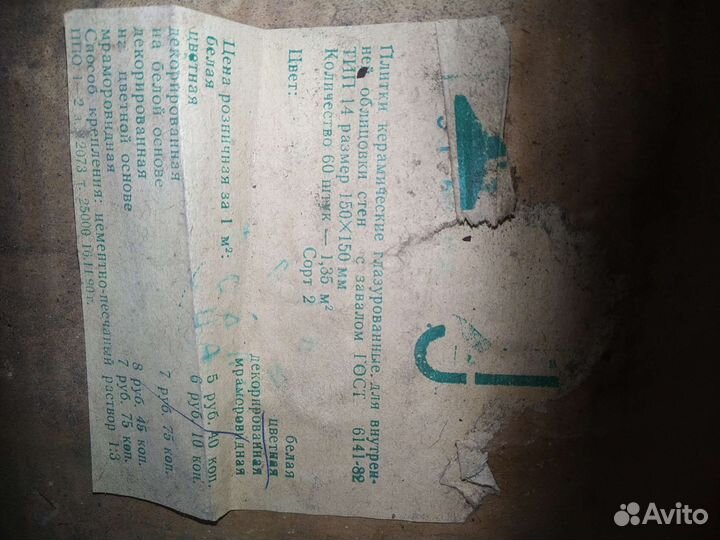 Плитки керамические глазурованные для внутрен-
ней облицовки стен с завалом ГОСТ 6141-82
ТИП 14 размер 150×150 мм
Количество 60 штук — 1,35 м²
Сорт 2
Цвет:
белая
цветная
декорированная
мраморовидная
Цена розничная за 1 м²:
белая 5 руб. 40 коп.
цветная 6 руб. 10 коп.
декорированная
на белой основе 7 руб. 75 коп.
декорированная
на цветной основе 8 руб. 45 коп.
мраморовидная 7 руб. 75 коп.
Способ крепления: цементно-песчаный раствор 1:3
ППО 1—2 з. 2073 Т. 25000 16.11.90 г.
Avito